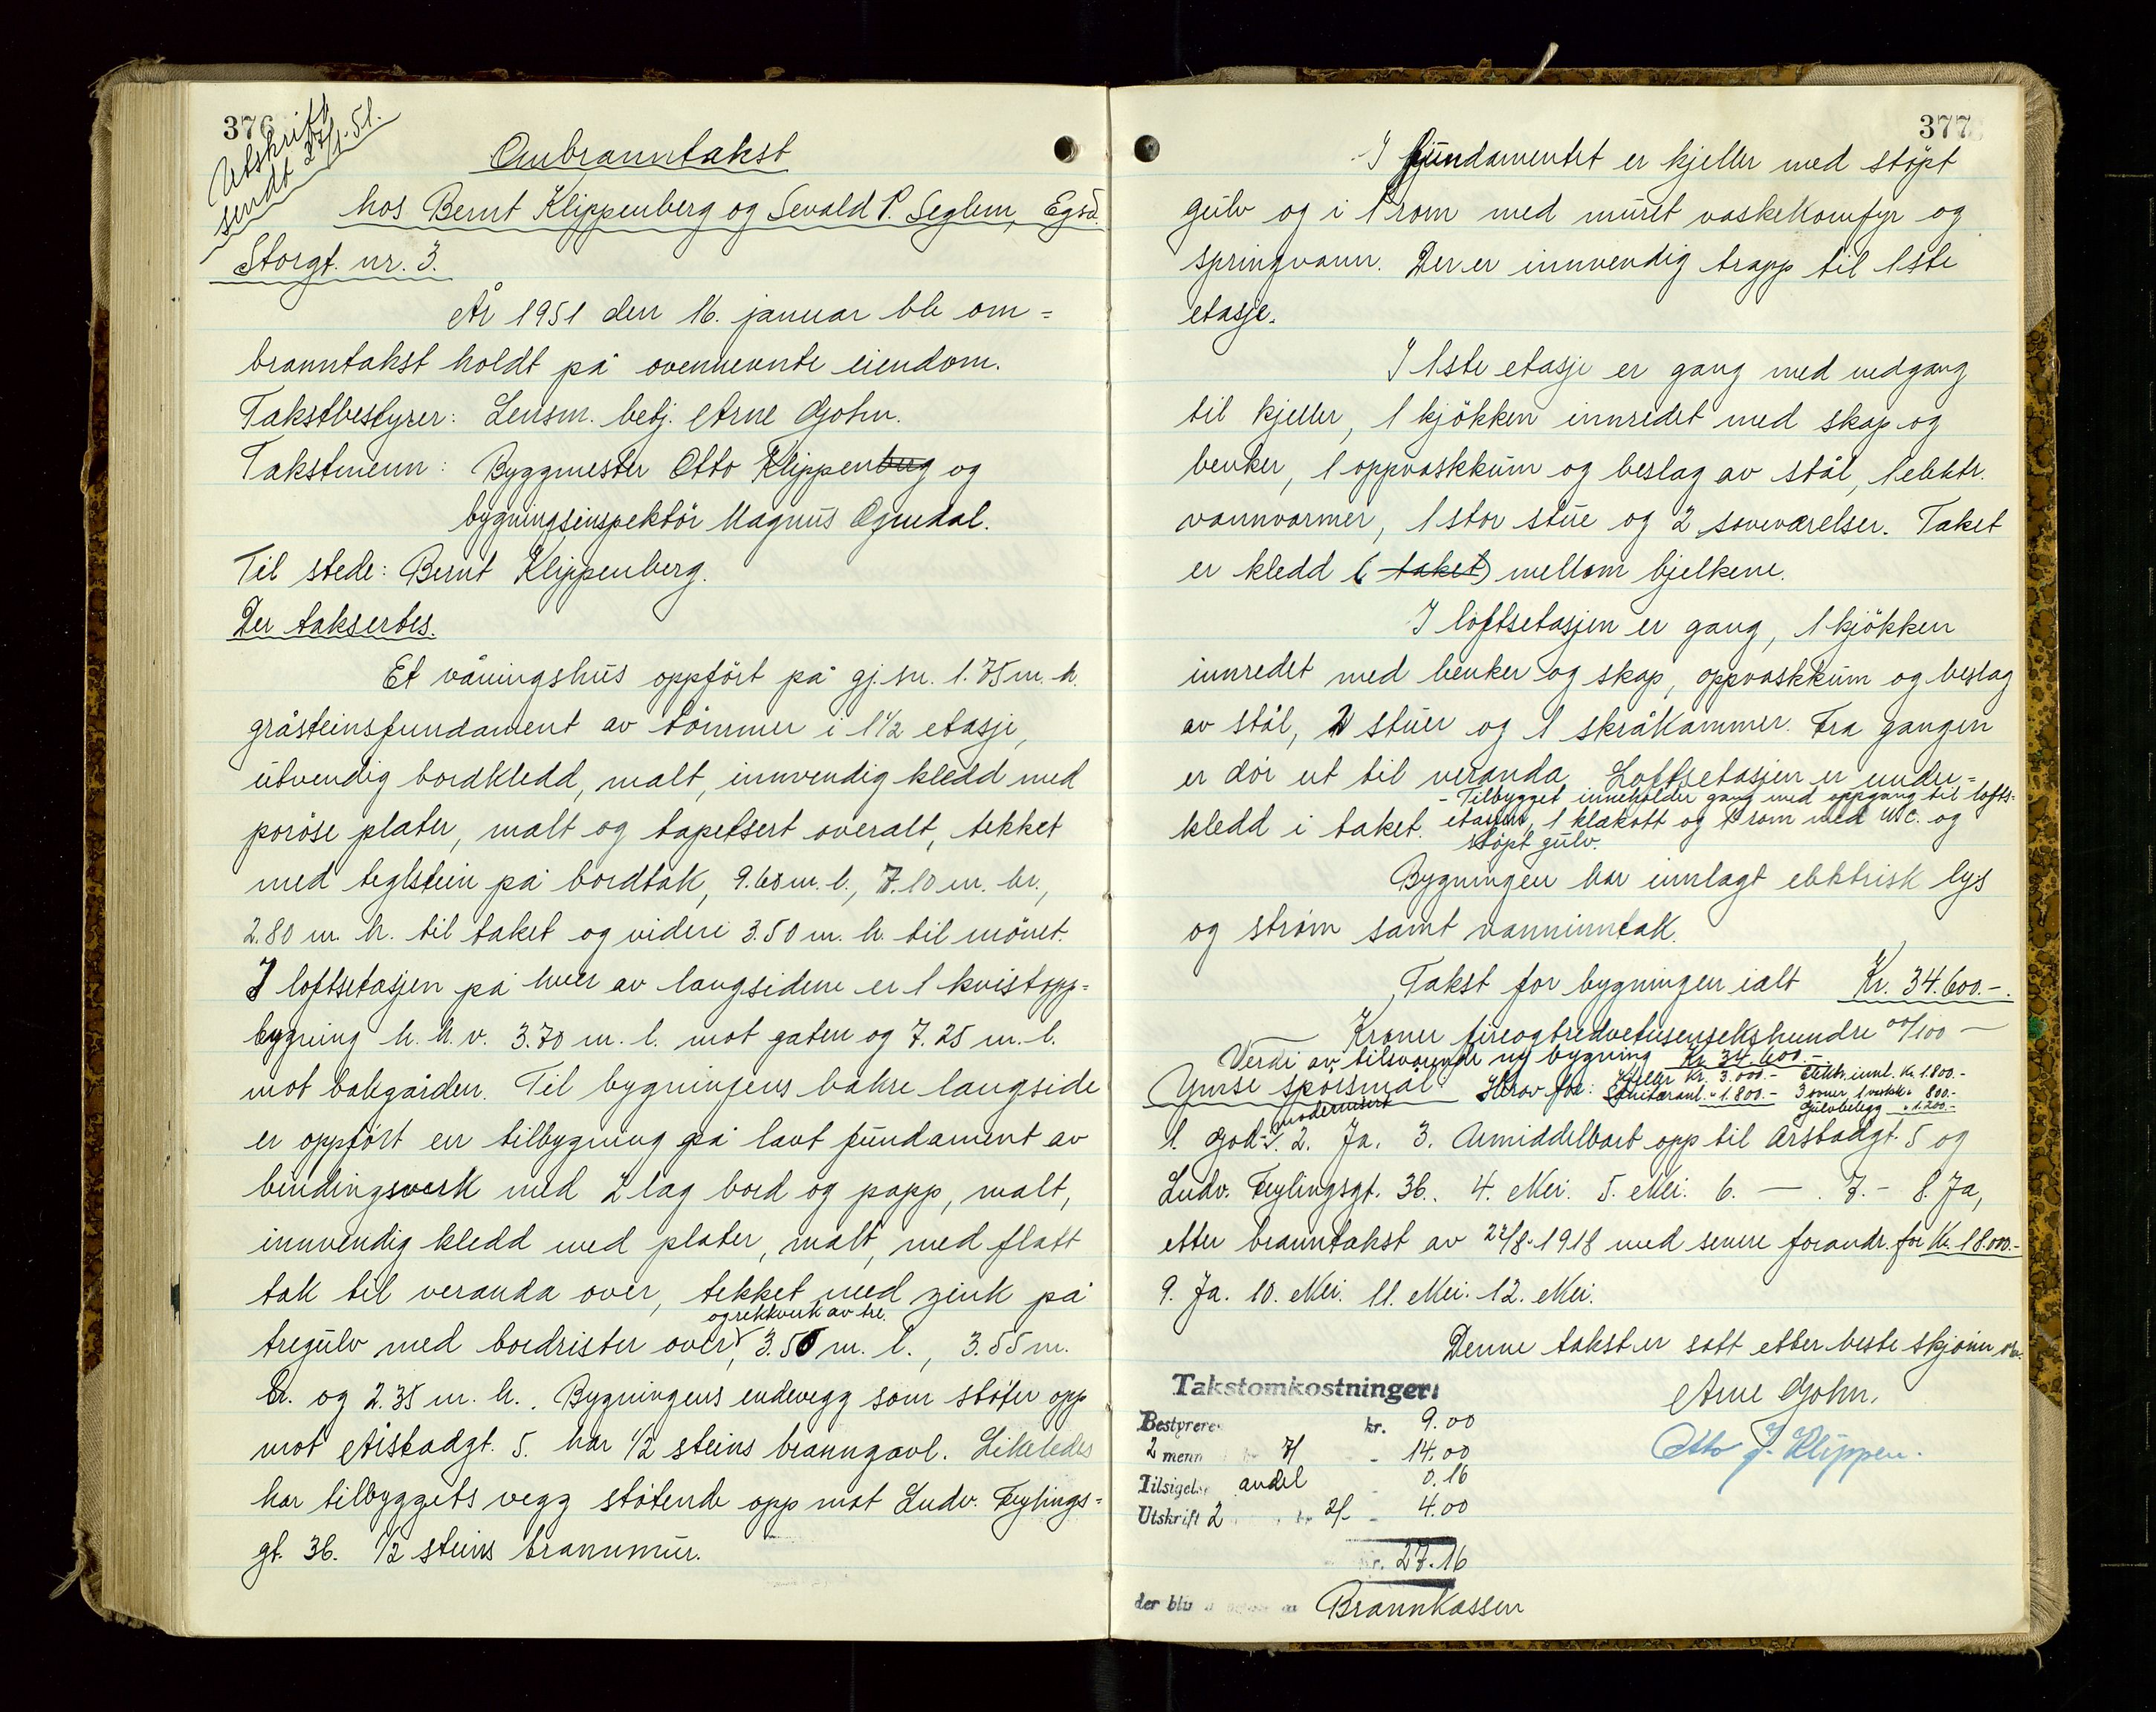 376
Utskrift
sendt 27/1.51.
Ombranntakst
hos Bernt Klippenberg og Sevald P. Seglem, Egsd.
Storgt. nr. 3.
År 1951 den 16. januar ble om=
branntakst holdt på ovennevnte eiendom.
Takstbestyrer: Lensm. betj. Arne Gjohn.
Takstmenn: Byggmester Otto Klippenberg og
bygningsinspektör Magnus Ognedal.
Til stede: Bernt Klippenberg.
Der taksertes.
Et våningshus oppfört på gj.sn. 1.75 m. h.
gråsteinsfundament av tömmer i 1 1/2 etasje,
utvendig bordkledd, malt, innvendig kledd med
poröse plater, malt og tapetsert overalt, tekket
med teglstein på bordtak, 9.60 m. l., 7.10 m. br.,
2.80 m. h. til taket og videre 3.50 m. h. til mönet.
I loftsetasjen på hver av langsidene er 1 kvistopp=
bygning h. h. v. 3.70 m. l. mot gaten og 7.25 m. l.
mot bakgården. Til bygningens bakre langside
er oppfört en tilbygning på lavt fundament av
bindingsverk med 2 lag bord og papp, malt,
innvendig kledd med plater, malt, med flatt
tak til veranda over, tekket med zink på
og rekkverk av tre.
tregulv med bordrister over, 3.50 m. l., 3.55 m.
br. og 2.35 m. h.. Bygningens endevegg som stöter opp
mot Årstadgt. 5. har 1/2 steins branngavl. Likeledes
har tilbyggets vegg stötende opp mot Ludv. Feylings=
gt. 36. 1/2 steins brannmur.
377
I fundamentet er kjeller med stöpt
gulv og i 1 rom med muret vaskekomfyr og
springvann. Der er innvendig trapp til 1ste
etasje.
I 1ste etasje er gang med nedgang
til kjeller, 1 kjökken innredet med skap og
benker, 1 oppvaskkum og beslag av stål, 1 elektr.
vannvarmer, 1 stor stue og 2 soveværelser. Taket
er kledd (taket) mellom bjelkene.
I loftsetasjen er gang, 1 kjökken
innredet med benker og skap, oppvaskkum og beslag
av stål, 2 stuer og 1 skråkammer. Fra gangen
er dör ut til veranda. Loftsetasjen er under=
- Tilbygget inneholder gang med oppgang til lofts=
kledd i taket. etasjen, 1 klækott og 1 rom med W.C. og
stöpt gulv.
Bygningen har innlagt elektrisk lys
og ström samt vanninntak.
Takst for bygningen ialt Kr. 34.600.-.
Kroner fireogtredvetusenseks hundre 00/100 —
Verdi av tilsvarende ny bygning Kr. 34.600.-
Ymse spörsmål Herav for: Kjeller Kr. 3.000.- Elektr. innl. Kr. 1.800.-
Sanitæranl. " 1.800.- 3 ovner 1 vaskk. " 800.-
modernisert Gulvbelegg " 1.200.-
1. God. 2. Ja. 3. Umiddelbart opp til Årstadgt. 5 og
Ludv. Feylingsgt. 36. 4. Nei. 5. Nei. 6. — . 7. - 8. Ja,
etter branntakst av 22/8-1918 med senere forandr. for Kr. 18.000.-
9. Ja. 10. Nei. 11. Nei. 12. Nei.
Denne takst er satt etter beste skjönn
Takstomkostninger:
Arne Gjohn.
Bestyreren kr. 9.00
Otto J. Klippen.
2 menn 7/ - 14.00
Tilsigelse andel - 0.16
Utskrift 2 2/- - 4.00
kr. 27.16
der blir Brannkassen